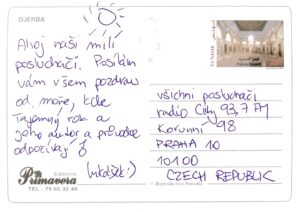 DJERBA
Ahoj naši milí
posluchači. Posílám
vám všem pozdrav
od moře, kde
Tajemný rok a
jeho autor a průvodce
odpočívají
(Lukášek!)
Editions
Primavera
TEL.: 75 65 32 44
TUNISIE
všichni posluchači
radio City 93,7 FM
Korunní 98
PRAHA 10
101 00
CZECH REPUBLIC